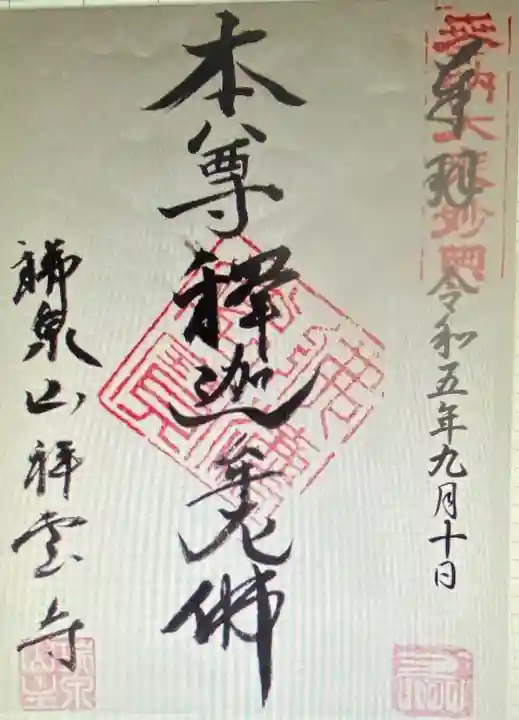 奉拝
奉納大乗妙典
令和五年九月十日
本尊釋迦牟尼佛
勝泉山祥雲寺